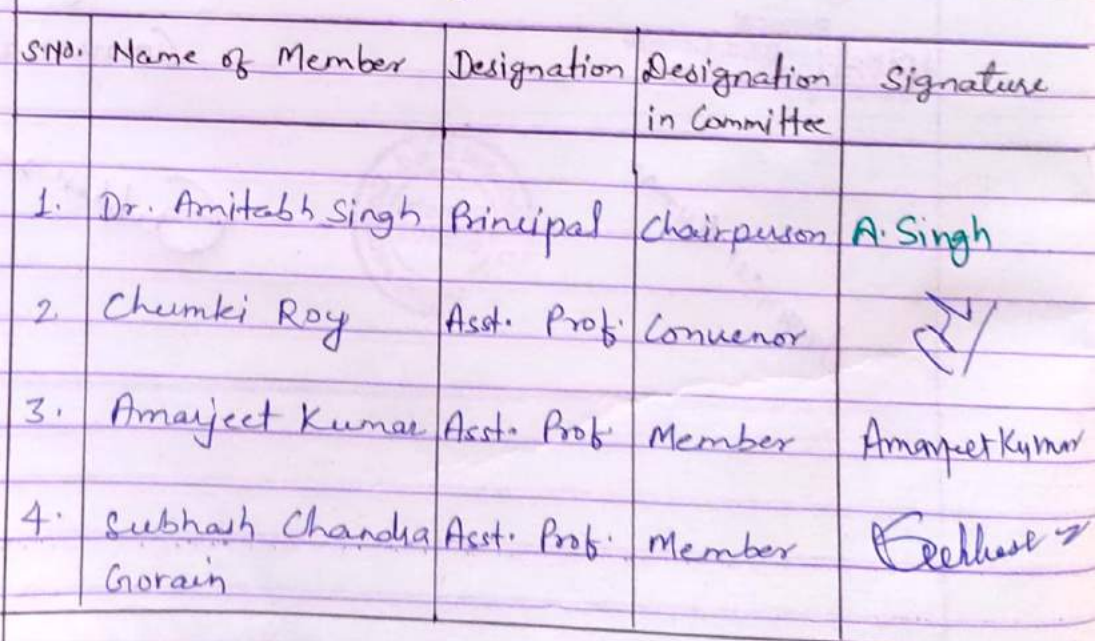 S.No. Name of Member Designation Designation in Committee Signature
1. Dr. Amitabh Singh Principal Chairperson A. Singh
2. Chumki Roy Asst. Prof. Convenor
3. Amarjeet Kumar Asst. Prof. Member Amarjeet Kumar
4. Subhash Chandra Gorain Asst. Prof. Member